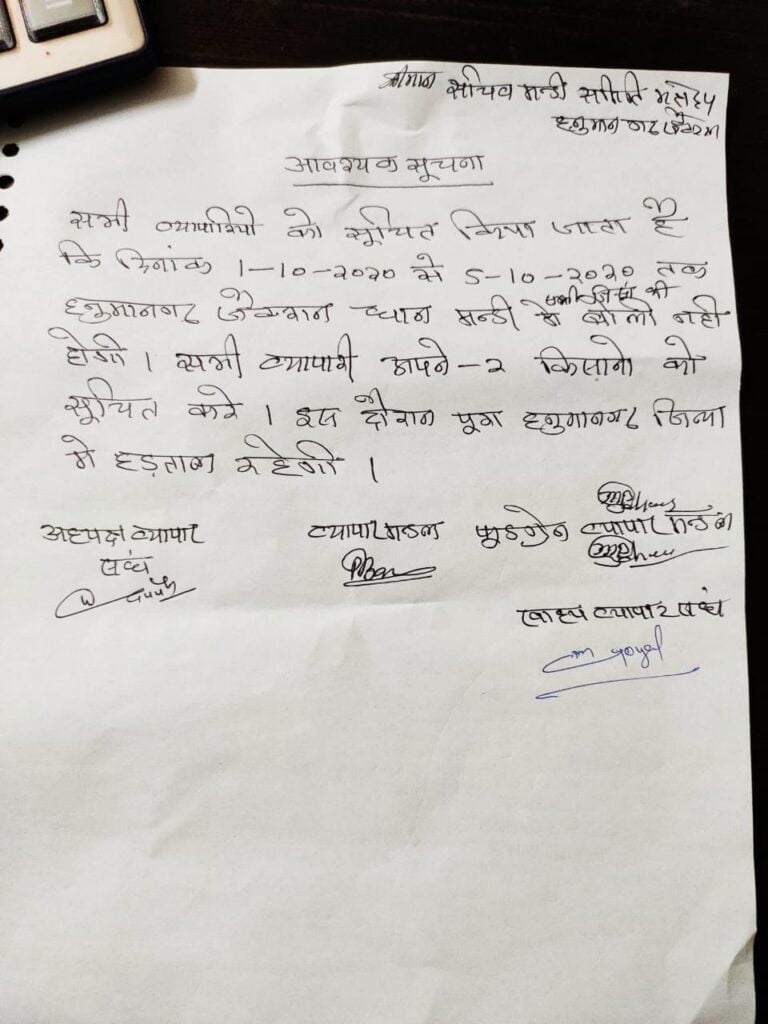 श्रीमान सचिव मन्डी समिति महोदय
हनुमानगढ जंक्शन
आवश्यक सूचना
सभी व्यापारियो को सूचित किया जाता है
कि दिनांक 1-10-2020 से 5-10-2020 तक
सभी जिंस की
हनुमानगढ जंक्शन धान मन्डी मे बोली नही
होगी । सभी व्यापारी अपने-२ किसानो को
सूचित करे । इस दौरान पूरा हनुमानगढ जिला
मे हड़ताल रहेगी ।
अध्यक्ष व्यापार संघ
व्यापार मन्डल
फूडग्रेन व्यापार मन्डल
खाद्य व्यापार संघ
goyal